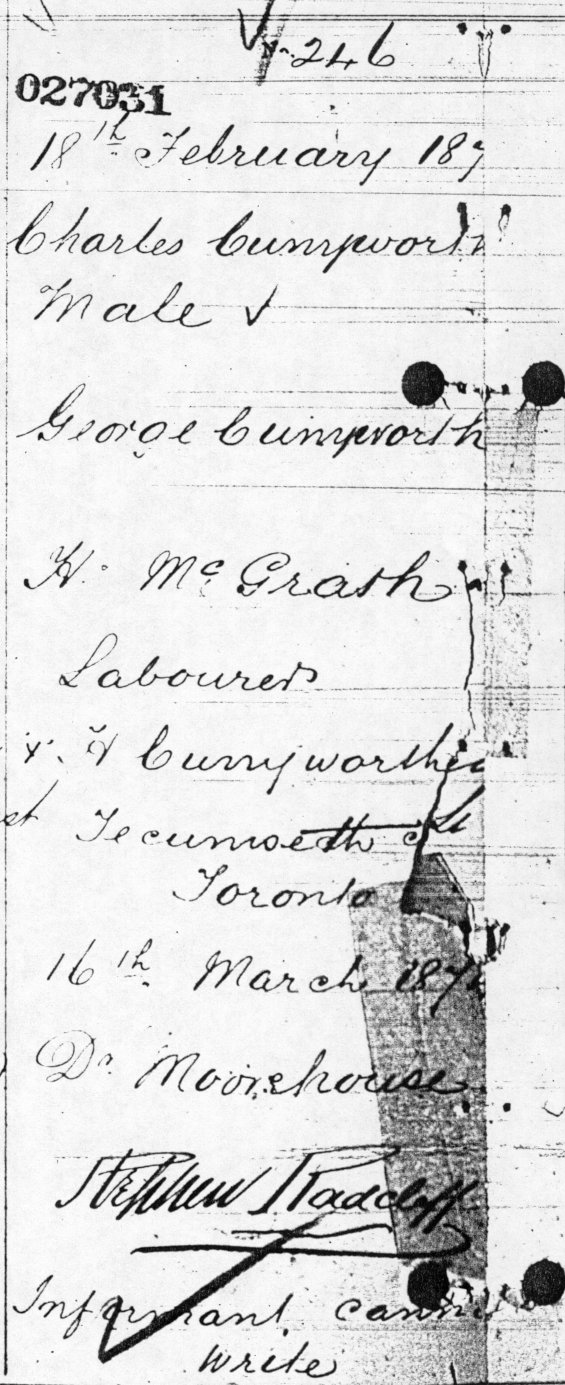 246
027031
18th February 187
Charles Cumpworth
Male
George Cumpworth
H. Mc Grath
Labourer
Cumpworth
st Tecumseth St
Toronto
16th March 187
Dr Moorehouse
Stephen Radcliff
Informant cannot
write